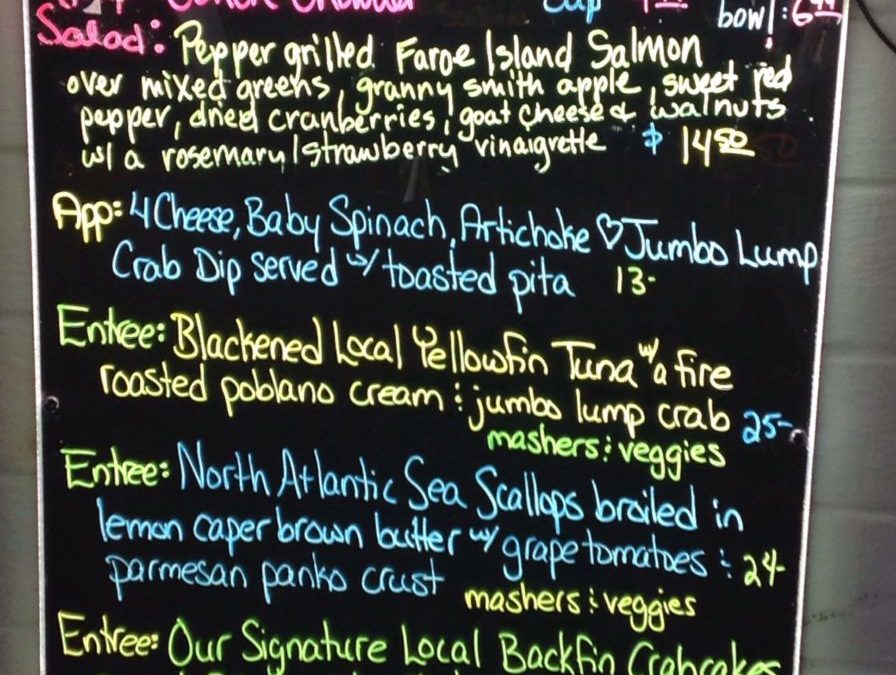 Chowder cup bowl: 6
Salad: Pepper grilled Faroe Island Salmon
over mixed greens, granny smith apple, sweet red
pepper, dried cranberries, goat cheese & walnuts
w/ a rosemary/strawberry vinaigrette $ 14.50
App: 4 Cheese, Baby Spinach, Artichoke ♡ Jumbo Lump
Crab Dip served w/ toasted pita 13-
Entree: Blackened Local Yellowfin Tuna w/ a fire
roasted poblano cream & jumbo lump crab 25-
mashers & veggies
Entree: North Atlantic Sea Scallops broiled in
lemon caper brown butter w/ grape tomatoes & 24-
parmesan panko crust
mashers & veggies
Entree: Our Signature Local Backfin Crabcakes